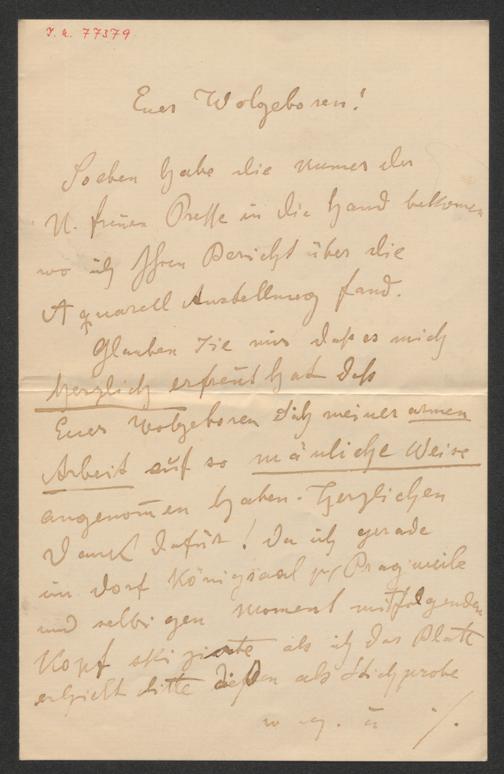 I. N. 77379
Euer Wolgeboren!
Soeben habe die numer der
N. freien Presse in die hand bekomen
wo ich Ihren Bericht über die
Aquarell Ausstellung fand.
Glauben Sie mir daß es mich
herzlich erfreut hat daß
Euer Wolgeboren sich meiner armen
Arbeit auf so mänliche Weise
angenom̄en haben. Herzlichen
Dank dafür! Da ich gerade
im Dorf Königsaal Prag weile
und selbigen moment mitfolgenden
Kopf skizirte als ich das Blatt
erhielt bitte diesen als Stichprobe